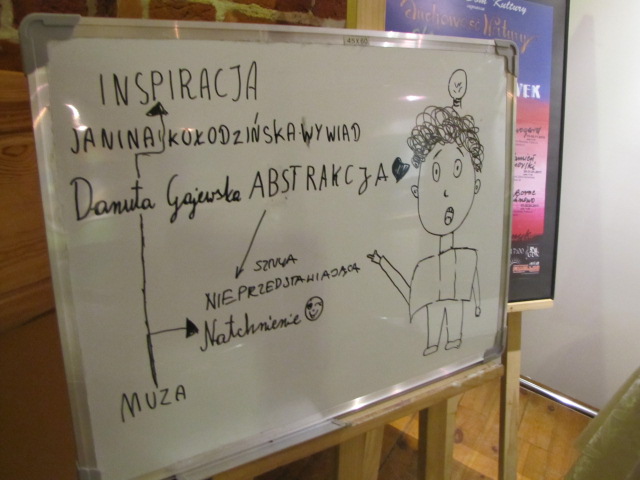 INSPIRACJA
JANINA KOŁODZIŃSKA-WYWIAD
Danuta Gajewska ABSTRAKCJA
SZTUKA
NIEPRZEDSTAWIAJĄCA
Natchnienie
MUZA
Kultury
17:00